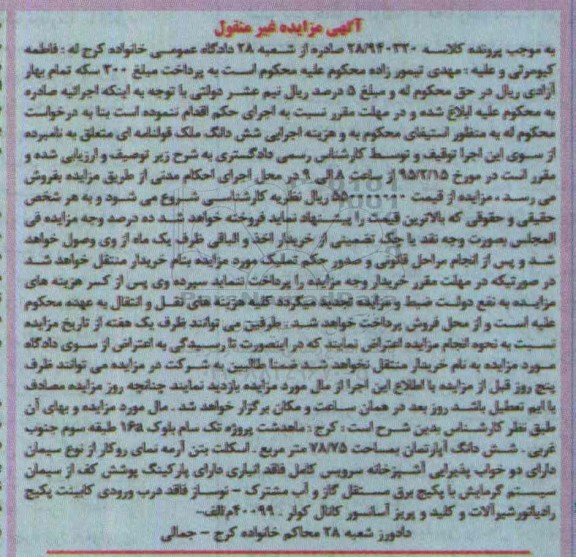 آگهی مزایده غیر منقول
به موجب پرونده کلاسه ۲۸/۹۴۰۳۲۰ صادره از شعبه ۲۸ دادگاه عمومی خانواده کرج له : فاطمه
کیومرثی و علیه : مهدی تیمور زاده محکوم علیه محکوم است به پرداخت مبلغ ۳۰۰ سکه تمام بهار
آزادی ریال در حق محکوم له و مبلغ ۵ درصد ریال نیم عشر دولتی با توجه به اینکه اجرائیه صادره
به محکوم علیه ابلاغ شده و در مهلت مقرر نسبت به اجرای حکم اقدام ننموده است بنا به درخواست
محکوم له به منظور استیفای محکوم به و هزینه اجرایی شش دانگ ملک قولنامه ای متعلق به نامبرده
از سوی این اجرا توقیف و توسط کارشناس رسمی دادگستری به شرح زیر توصیف و ارزیابی شده و
مقرر است در مورخ ۹۵/۲/۱۵ از ساعت ۸ الی ۹ در محل اجرای احکام مدنی از طریق مزایده بفروش
می رسد . مزایده از قیمت ریال نظریه کارشناسی شروع می شود و به هر شخص
حقیقی و حقوقی که بالاترین قیمت را پیشنهاد نماید فروخته خواهد شد ده درصد وجه مزایده فی
المجلس بصورت وجه نقد یا چک تضمینی از خریدار اخذ و الباقی ظرف یک ماه از وی وصول خواهد
شد و پس از انجام مراحل قانونی و صدور حکم تملیک مورد مزایده بنام خریدار منتقل خواهد شد
در صورتیکه در مهلت مقرر خریدار وجه مزایده را پرداخت ننماید سپرده وی پس از کسر هزینه های
مزایده به نفع دولت ضبط و مزایده تجدید میگردد کلیه هزینه های نقل و انتقال به عهده محکوم
علیه است و از محل فروش پرداخت خواهد شد . طرفین می توانند ظرف یک هفته از تاریخ مزایده
نسبت به نحوه انجام مزایده اعتراض نمایند که در اینصورت تا رسیدگی به اعتراض از سوی دادگاه
مورد مزایده به نام خریدار منتقل نخواهد شد ضمنا طالبین به شرکت در مزایده می توانند ظرف
پنج روز قبل از مزایده با اطلاع این اجرا از مال مورد مزایده بازدید نمایند چنانچه روز مزایده مصادف
با ایم تعطیل باشد روز بعد در همان ساعت و مکان برگزار خواهد شد . مال مورد مزایده و بهای آن
طبق نظر کارشناس بدین شرح است : کرج : ماهدشت پروژه تک سام بلوک ۱۶a طبقه سوم جنوب
غربی . شش دانگ آپارتمان بمساحت ۷۸/۷۵ متر مربع . اسکلت بتن آرمه نمای روکار از نوع سیمان
دارای دو خواب پذیرایی آشپزخانه سرویس کامل فاقد انباری دارای پارکینگ پوشش کف از سیمان
سیستم گرمایش با پکیج برق مستقل گاز و آب مشترک – نوساز فاقد درب ورودی کابینت پکیج
رادیاتور شیرآلات و کلید و پریز آسانسور کانال کولر : ۴۰۰۹۹/م/الف-
دادورز شعبه ۲۸ محاکم خانواده کرج – جمالی